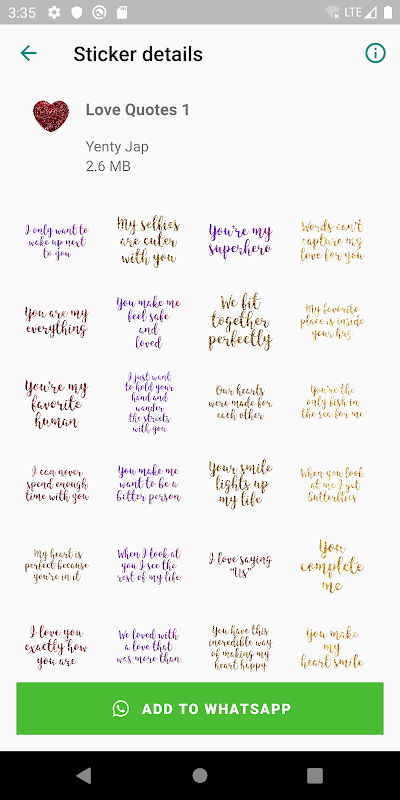 3:35
LTE
Sticker details
Love Quotes 1
Yenty Jap
2.6 MB
I only want to
wake up next
to you
My selfies
are cuter
with you
You're my
superhero
Words can't
capture my
love for you
You are my
everything
You make me
feel safe
and
loved
We fit
together
perfectly
My favorite
place is inside
your hug
You're my
favorite
human
I just want
to hold your
hand and
wander
the streets
with you
Our hearts
were made for
each other
You're the
only fish in
the sea for me
I can never
spend enough
time with you
You make me
want to be a
better person
Your smile
lights up
my life
When you look
at me I get
butterflies
My heart is
perfect because
you're in it
When I look at
you I see the
rest of my life
I love saying
"Us"
You
complete
me
I love you
exactly how
you are
We loved with
a love that
was more than
You have this
incredible way
of making my
heart happy
You make
my
heart smile
ADD TO WHATSAPP